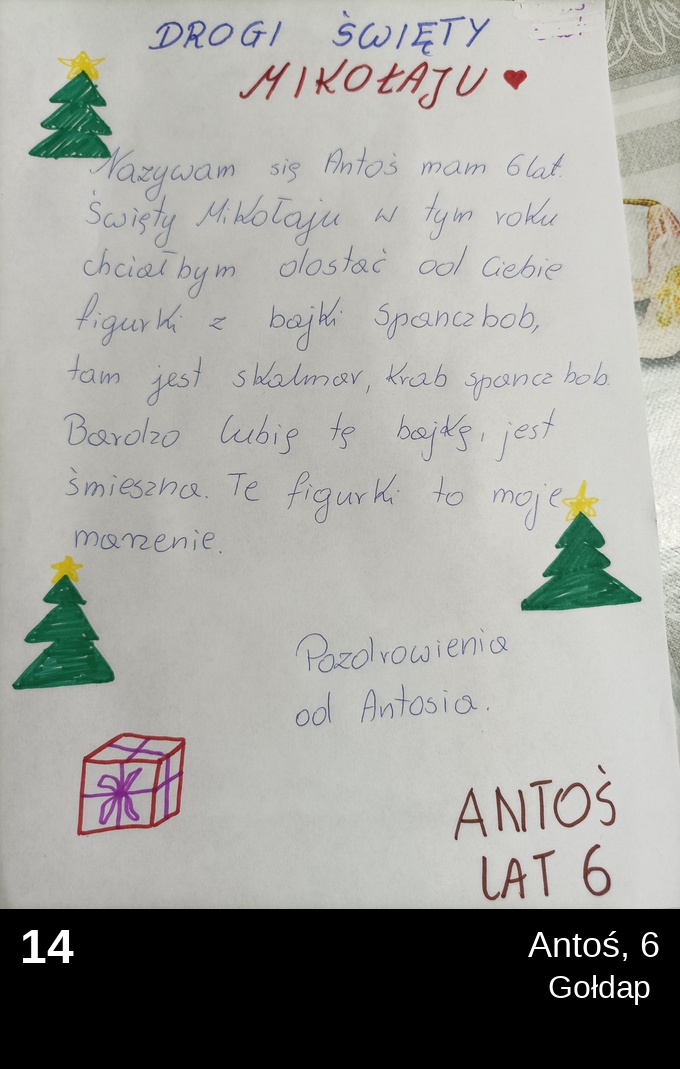 DROGI ŚWIĘTY
MIKOŁAJU
Nazywam się Antoś mam 6 lat.
Święty Mikołaju w tym roku
chciałbym dostać od Ciebie
figurki z bajki Spanczbob,
tam jest skalmar, krab spanczbob.
Bardzo lubię tę bajkę, jest
śmieszna. Te figurki to moje
marzenie.
Pozdrowienia
od Antosia.
ANTOŚ
LAT 6
14
Antoś, 6
Gołdap